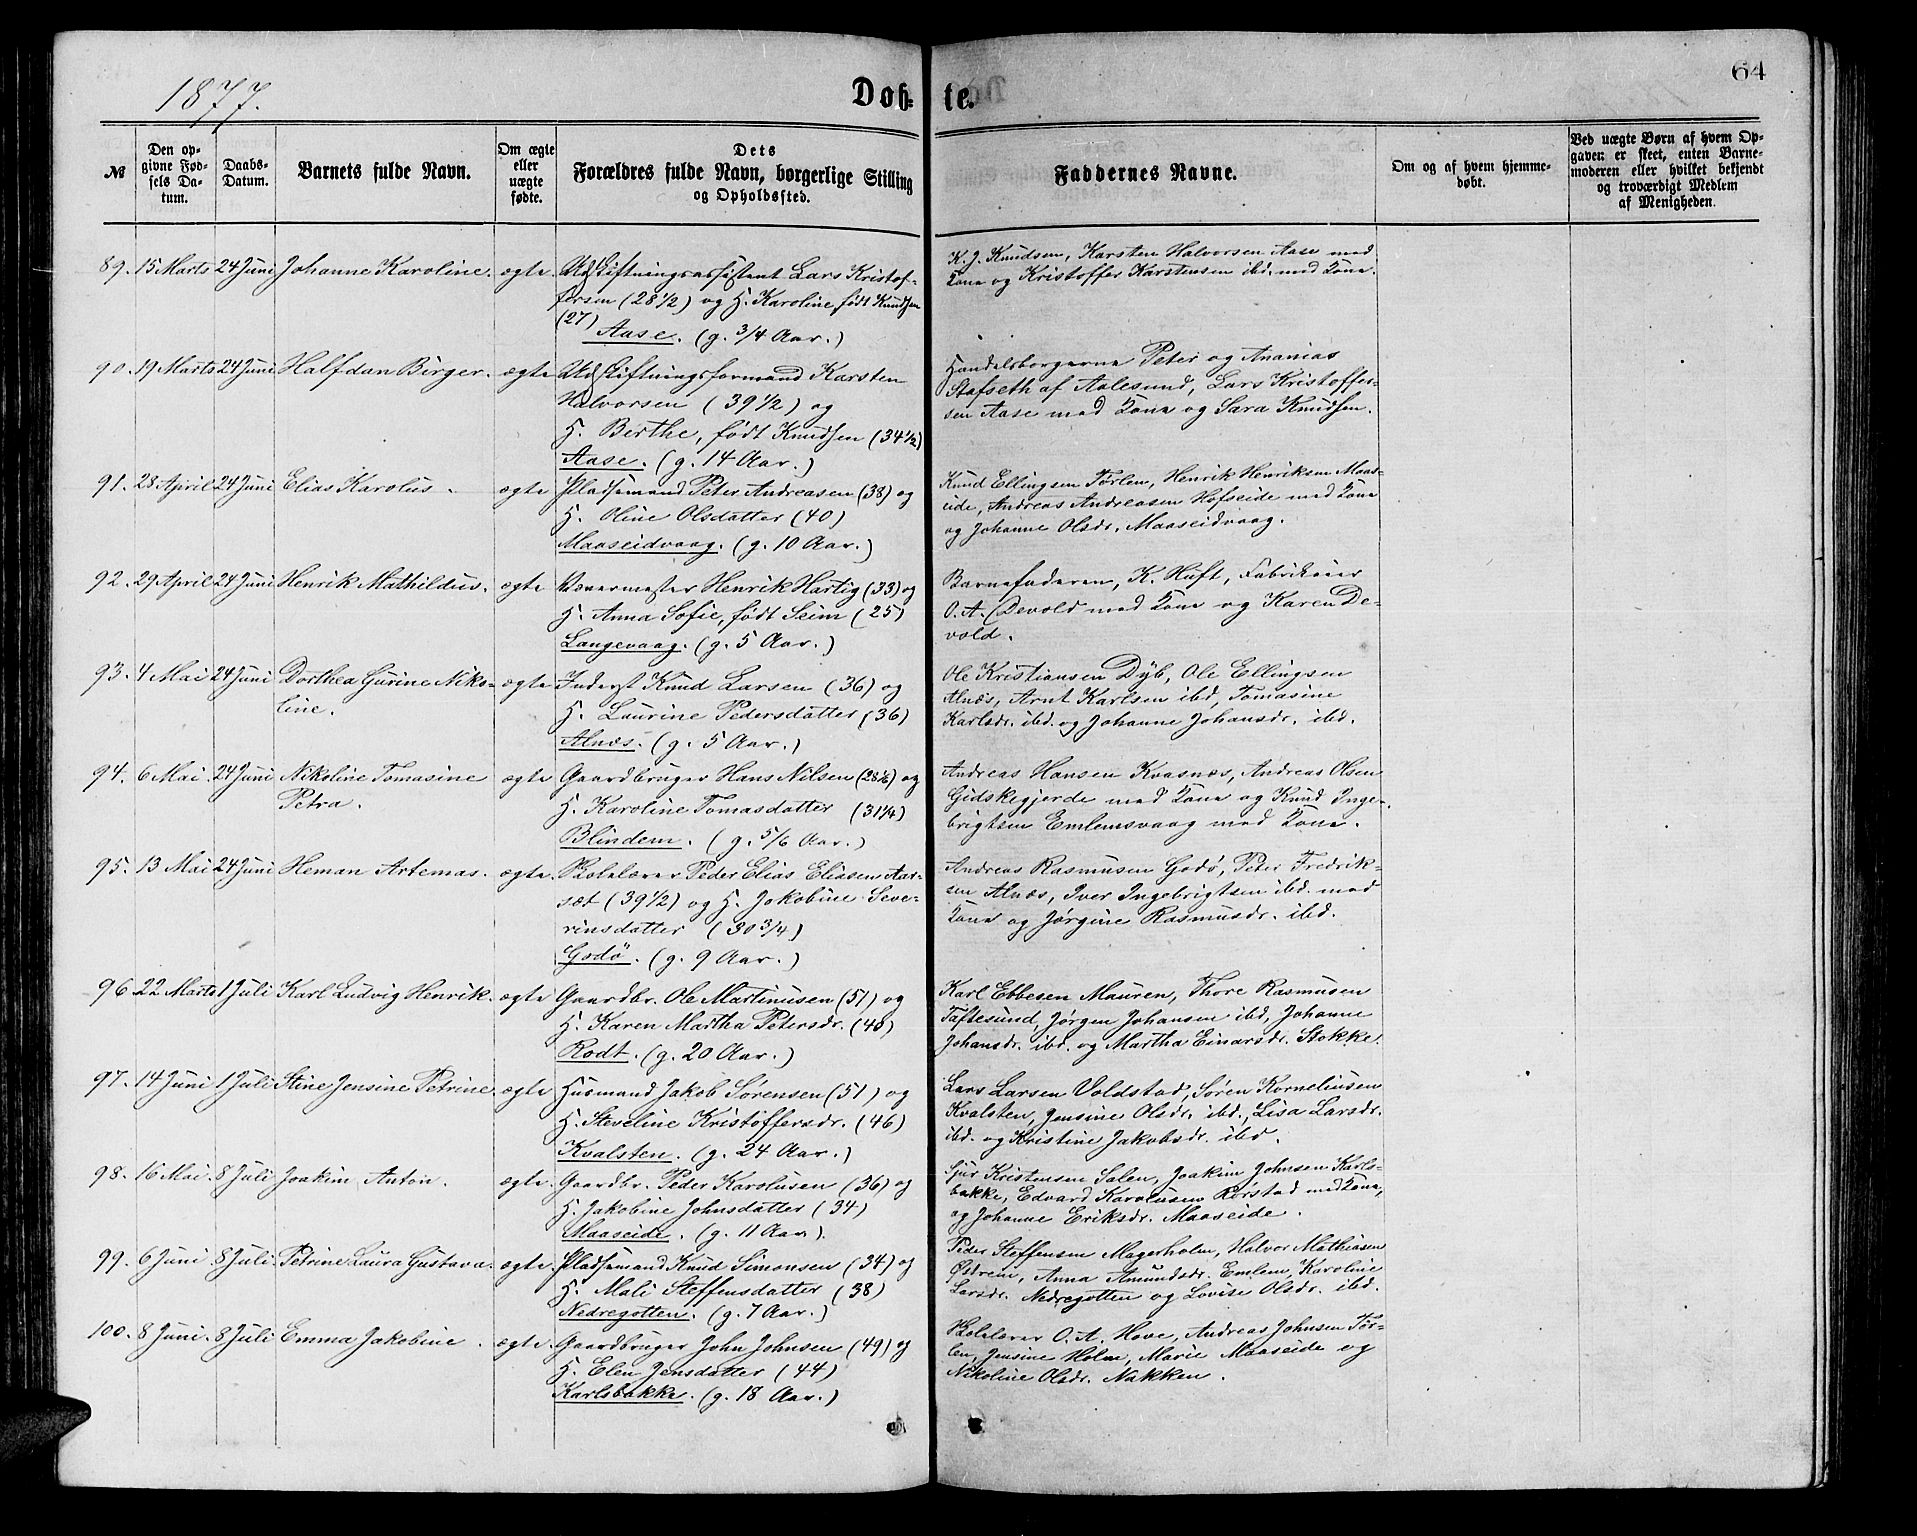 1877.
Døb-
te.
64
№
Den op-
givne Fød-
sels Da-
tum.
Daabs-
Datum.
Barnets fulde Navn.
Om ægte
eller
uægte
fødte.
Dets
Forældres fulde Navn, borgerlige Stilling
og Opholdssted.
Faddernes Navne.
Om og af hvem hjemme-
døbt.
Ved uægte Børn af hvem Op-
gaven er skeet, enten Barne-
moderen eller hvilket bekjendt
og troværdigt Medlem
af Menigheden.
89. 15 Marts 24 Juni Johanne Karoline. ægte Udskiftningsassistent Lars Kristof-
fersen (28 1/2) og H. Karoline, født Knudsen
(27)
Aase. (g. 3/4 Aar.)
K. J. Knudsen, Karsten Halvorsen Aase med
Kone og Kristoffer Karstensen ibd. med Kone.
90. 19 Marts 24 Juni Halfdan Birger. ægte Udskiftningsformand Karsten
Halvorsen (39 1/2) og
H. Berthe, født Knudsen (34 1/2)
Aase. (g. 14 Aar.)
Handelsborgerne Peter og Ananias
Stafseth af Aalesund, Lars Kristoffer-
sen Aase med Kone og Sara Knudsen.
91. 28 April 24 Juni Elias Karolus. ægte Pladsemand Peter Andreasen (38) og
H. Oline Olsdatter (40)
Maaseidvaag. (g. 10 Aar.)
Knud Ellingsen Tørlen, Henrik Henriksen Maas-
eide, Andreas Andreasen Hofseide med Kone
og Johanne Olsdr. Maaseidvaag.
92. 29 April 24 Juni Henrik Mathildus. ægte Vævermester Henrik Hartig (33) og
H. Anna Sofie, født Seim (25)
Langevaag. (g. 5 Aar.)
Barnefaderen, K. Huft, Fabrikeier
O. A. Devold med Kone og Karen De-
vold.
93. 4 Mai 24 Juni Dorthea Gurine Niko-
line. ægte Inderst Knud Larsen (36) og
H. Laurine Pedersdatter (36)
Alnæs. (g. 5 Aar.)
Ole Kristiansen Dyb, Ole Ellingsen
Alnæs, Arnt Karlsen ibd, Tomasine
Karlsdr. ibd. og Johanne Johansdr. ibd.
94. 6 Mai 24 Juni Nikoline Tomasine
Petra. ægte Gaardbruger Hans Nilsen (28 1/2) og
H. Karoline Tomasdatter (31 1/4)
Blindem. (g. 5/6 Aar.)
Andreas Hansen Kvasnæs, Andreas Olsen
Gidskegjerde med Kone og Knud Inge-
brigtsen Emlemsvaag med Kone.
95. 13 Mai 24 Juni Heman Artemas. ægte. Skolelærer Peder Elias Eliasen Aar-
sæt (39 1/2) og H. Jakobine Seve-
rinsdatter (30 3/4)
Godø. (g. 9 Aar.)
Andreas Rasmusen Godø, Peter Fredrik-
sen Alnæs, Iver Ingebrigtsen ibd. med
Kone og Jørgine Rasmusdr. ibd.
96. 22 Marts 1 Juli Karl Ludvig Henrik. ægte Gaardbr. Ole Martinusen (51) og
H. Karen Martha Petersdr. (40)
Rødt. (g. 20 Aar.)
Karl Ebbesen Mauren, Thore Rasmusen
Tøftesund, Jørgen Johansen ibd, Johanne
Johansdr. ibd. og Martha Einarsdr. Stokke.
97. 14 Juni 1 Juli Stine Jensine Petrine. ægte Husmand Jakob Sørensen (51) og
H. Steveline Kristoffersdr. (46)
Kvalsten. (g. 24 Aar.)
Lars Larsen Voldstad, Søren Korneliusen
Kvalsten, Jensine Olsdr. ibd., Lisa Larsdr.
ibd. og Kristine Jakobsdr. ibd.
98. 16 Mai. 8 Juli Joakim Anton. ægte. Gaardbr. Peder Karolusen (36) og
H. Jakobine Johnsdatter (34)
Maaseide. (g. 11 Aar.)
Sjur Kristensen Salen, Joakim Johnsen Karls-
bakke, Edvard Karolusen Rørstad med Kone,
og Johanne Eriksdr. Maaseide.
99. 6 Juni 8 Juli. Petrine Laura Gustava. ægte. Pladsemand Knud Simonsen (34) og
H. Mali Steffensdatter (38)
Nedregotten. (g. 7 Aar.)
Peder Steffensen Magerholm, Halvor Mathiasen
Østrem, Anna Amundsdr. Emlem, Karoline
Larsdr. Nedregotten og Lovise Olsdr. ibd.
100. 8 Juni. 8 Juli Emma Jakobine. ægte. Gaardbruger John Johnsen (49) og
H. Elen Jensdatter (44)
Karlsbakke. (g. 18 Aar.)
Skolelærer O. A. Hove, Andreas Johnsen Tør-
len, Jensine Holm, Marie Maaseide og
Nikoline Olsdr. Nakken.